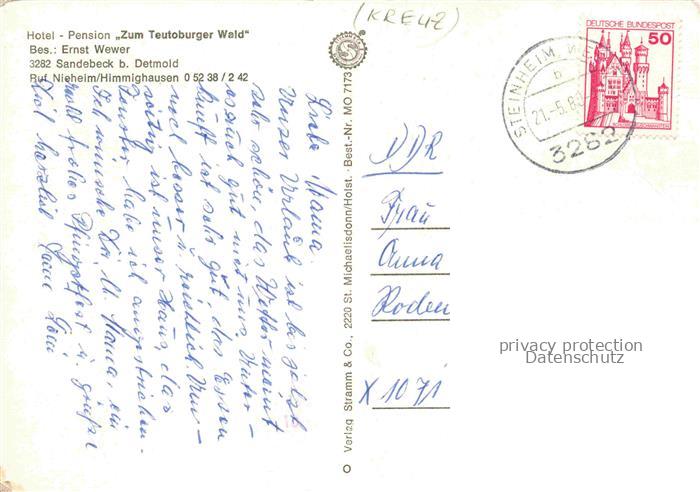 (KREUZ)
Hotel - Pension „Zum Teutoburger Wald"
Bes.: Ernst Wewer
3282 Sandebeck b. Detmold
Ruf Nieheim/Himmighausen 0 52 38 / 2 42
DEUTSCHE BUNDESPOST
50
STEINHEIM
b
21.-5.80
3282
Liebe Mama.
Unser Urlaub ist bis jetzt
sehr schön, das Wetter meint
es auch gut mit uns. Unter-
kunft ist sehr gut das Essen
viel besser u. reichlich. Nur
ist unser Haus, das
Fenster habe ich angestrichen.
Ich wünsche Dir, lb. Mama, ein
recht frohes Pfingstfest u. grüße
Dich herzlich Deine
Verlag Stramm & Co., 2220 St. Michaelisdonn/Holst. · Best.-Nr. MO 7173
DDR
Frau
Anna
Roden
X 1071
privacy protection
Datenschutz